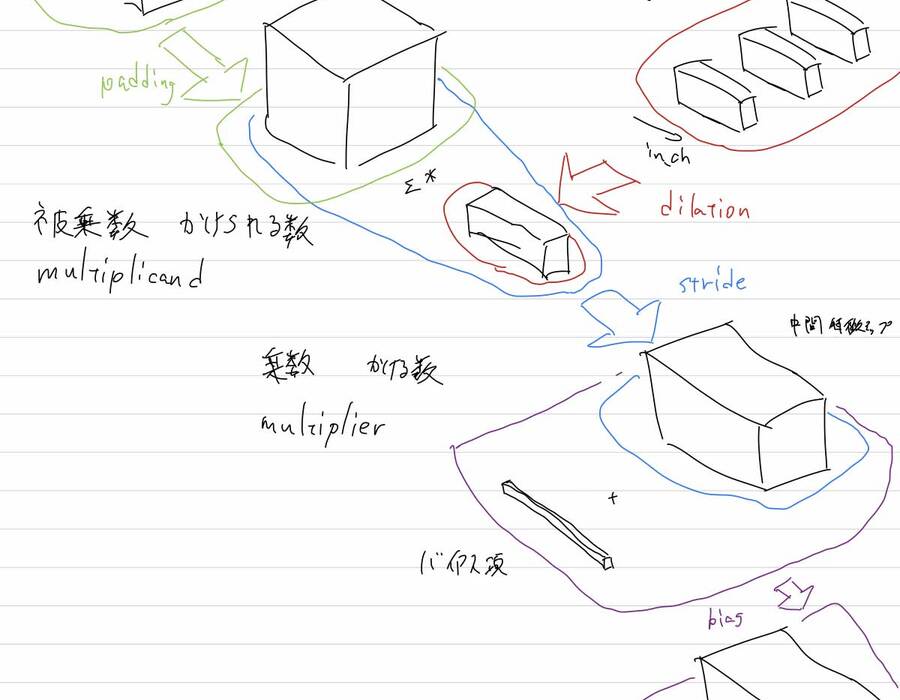 padding
inch
Σ*
dilation
被乗数 かけられる数
multiplicand
stride
中間特徴マップ
乗数 かける数
multiplier
+
バイアス項
bias